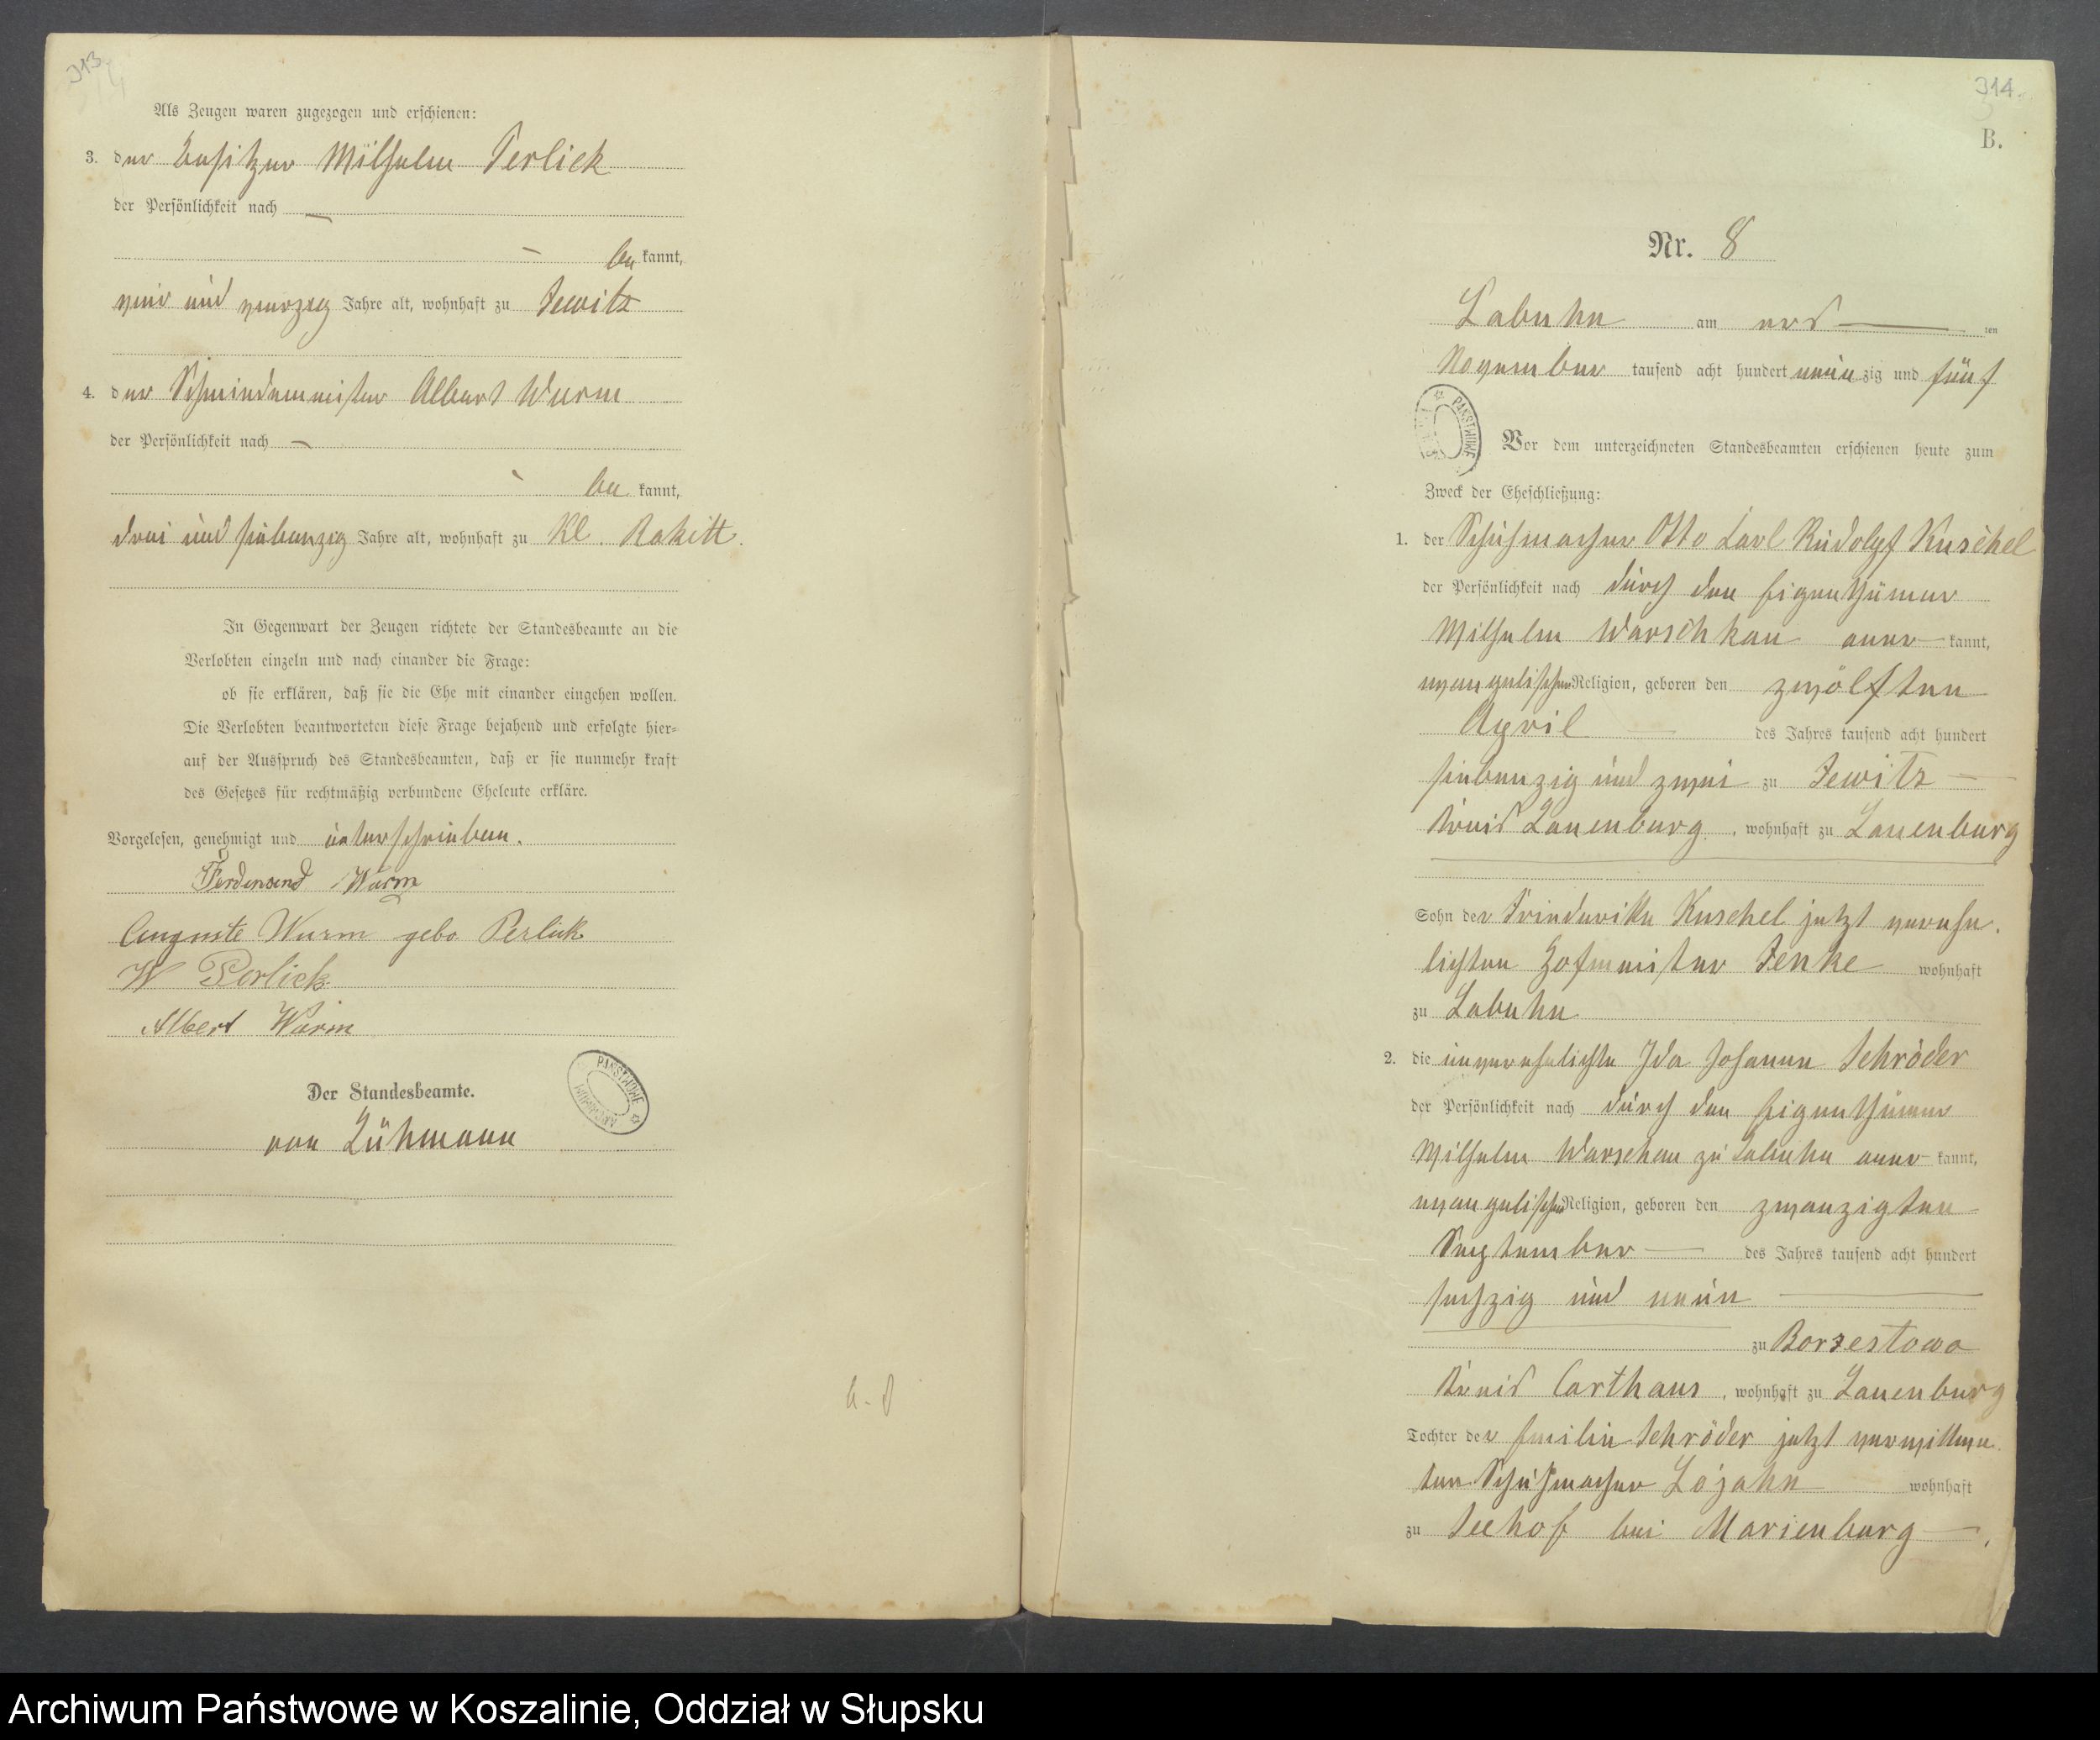 313
Als Zeugen waren zugezogen und erschienen:
3. der Besitzer Wilhelm Perlick
der Persönlichkeit nach —
— be kannt,
vier und vierzig Jahre alt, wohnhaft zu Jewitz
4. der Schmiedemeister Albert Wurm
der Persönlichkeit nach —
be kannt,
drei und siebenzig Jahre alt, wohnhaft zu Kl. Rakitt.
In Gegenwart der Zeugen richtete der Standesbeamte an die
Verlobten einzeln und nach einander die Frage:
ob sie erklären, daß sie die Ehe mit einander eingehen wollen.
Die Verlobten beantworteten diese Frage bejahend und erfolgte hier=
auf der Ausspruch des Standesbeamten, daß er sie nunmehr kraft
des Gesetzes für rechtmäßig verbundene Eheleute erkläre.
Vorgelesen, genehmigt und unterschrieben.
Ferdenand Wurm
Auguste Wurm gebo Perlick
W Perlick
Albert Wurm
Der Standesbeamte.
von Lühmann
PAŃSTWOWE ARCHIWUM
314.
B.
Nr. 8
Labuhn am ers — ten
November tausend acht hundert neun zig und fünf
PAŃSTWOWE
Vor dem unterzeichneten Standesbeamten erschienen heute zum
Zweck der Eheschließung:
1. der Schuhmacher Otto Carl Rudolpf Kuschel
der Persönlichkeit nach durch den Eigenthümer
Wilhelm Warschkau aner kannt,
evangelischer Religion, geboren den zwölften
April — des Jahres tausend acht hundert
siebenzig und zwei zu Jewitz —
Kreis Lauenburg, wohnhaft zu Lauenburg
Sohn der Friederike Kuschel jetzt verehe.
lichten Hofmeister Jenke wohnhaft
zu Labuhn
2. die unverehelichte Ida Johanne Schröder
der Persönlichkeit nach durch den Eigenthümer
Wilhelm Warschau zu Labuhn aner kannt,
evangelischer Religion, geboren den zwanzigten
September — des Jahres tausend acht hundert
sechzig und neun —
zu Borzestowo
Kreis Carthaus, wohnhaft zu Lauenburg
Tochter der Emilie Schröder jetzt verwittwe.
ten Schuhmacher Lojahn wohnhaft
zu Seehof bei Marienburg —,
Archiwum Państwowe w Koszalinie, Oddział w Słupsku